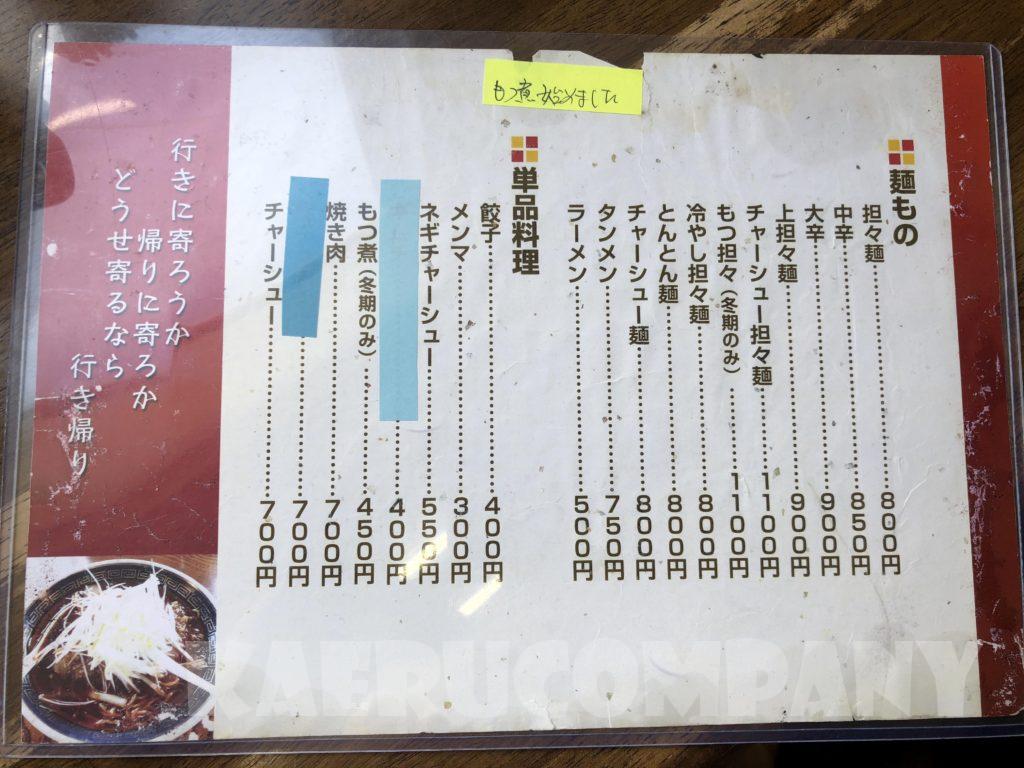 もつ煮始めました
麺もの
担々麺 800円
中辛 850円
大辛 900円
上担々麺 900円
チャーシュー担々麺 1100円
もつ担々(冬期のみ) 1100円
冷やし担々麺 800円
とんとん麺 800円
チャーシュー麺 800円
タンメン 750円
ラーメン 500円
単品料理
餃子 400円
メンマ 300円
ネギチャーシュー 550円
400円
もつ煮(冬期のみ) 450円
焼き肉 700円
700円
チャーシュー 700円
行きに寄ろうか
帰りに寄ろか
どうせ寄るなら
行き帰り
KAERUCOMPANY